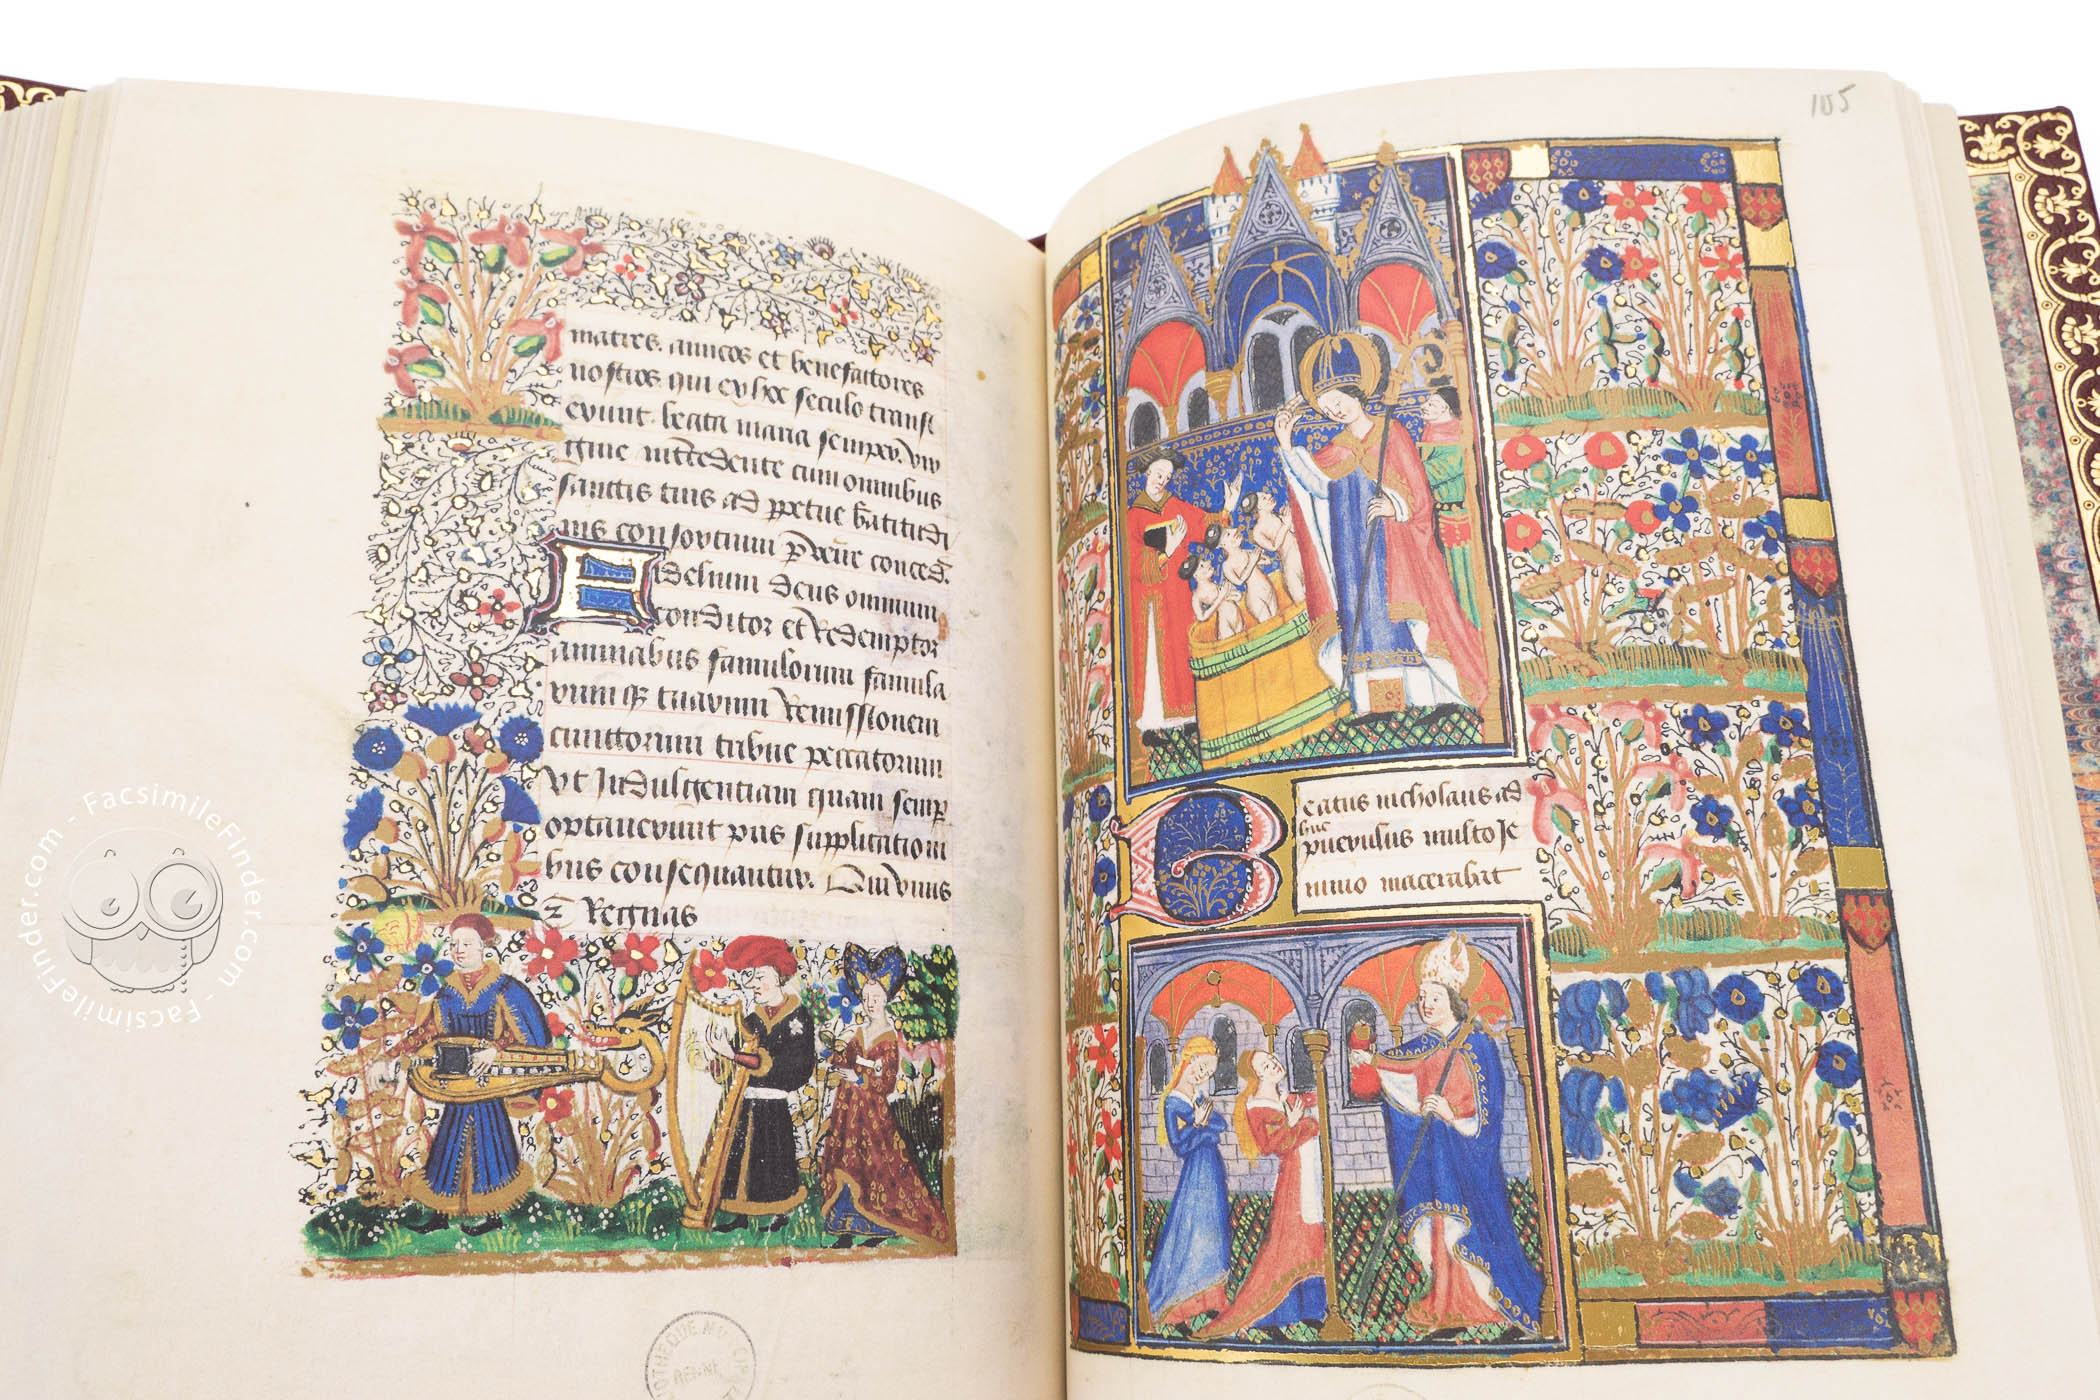 matres. amicos et benefactores
nostros. qui ex hoc seculo trans
erunt. beata maria semper. vir
gine intercedente cum omnibus
sanctis tuis ad ppetue btitudi
nis consortium puenire conced.
Fidelium deus omnium
conditor et redemptor
animabus famulorum famula
rum q tuarum remissionem
cunctorum tribue peccatorum
vt Indulgentiam quam semp
optauerunt piis supplicationi
bus consequantur. Qui viuis
z regnas
105
Beatus nicholaus ad
huc
puerulus multo Je
iunio macerabat
FacsimileFinder.com - FacsimileFinder.com -